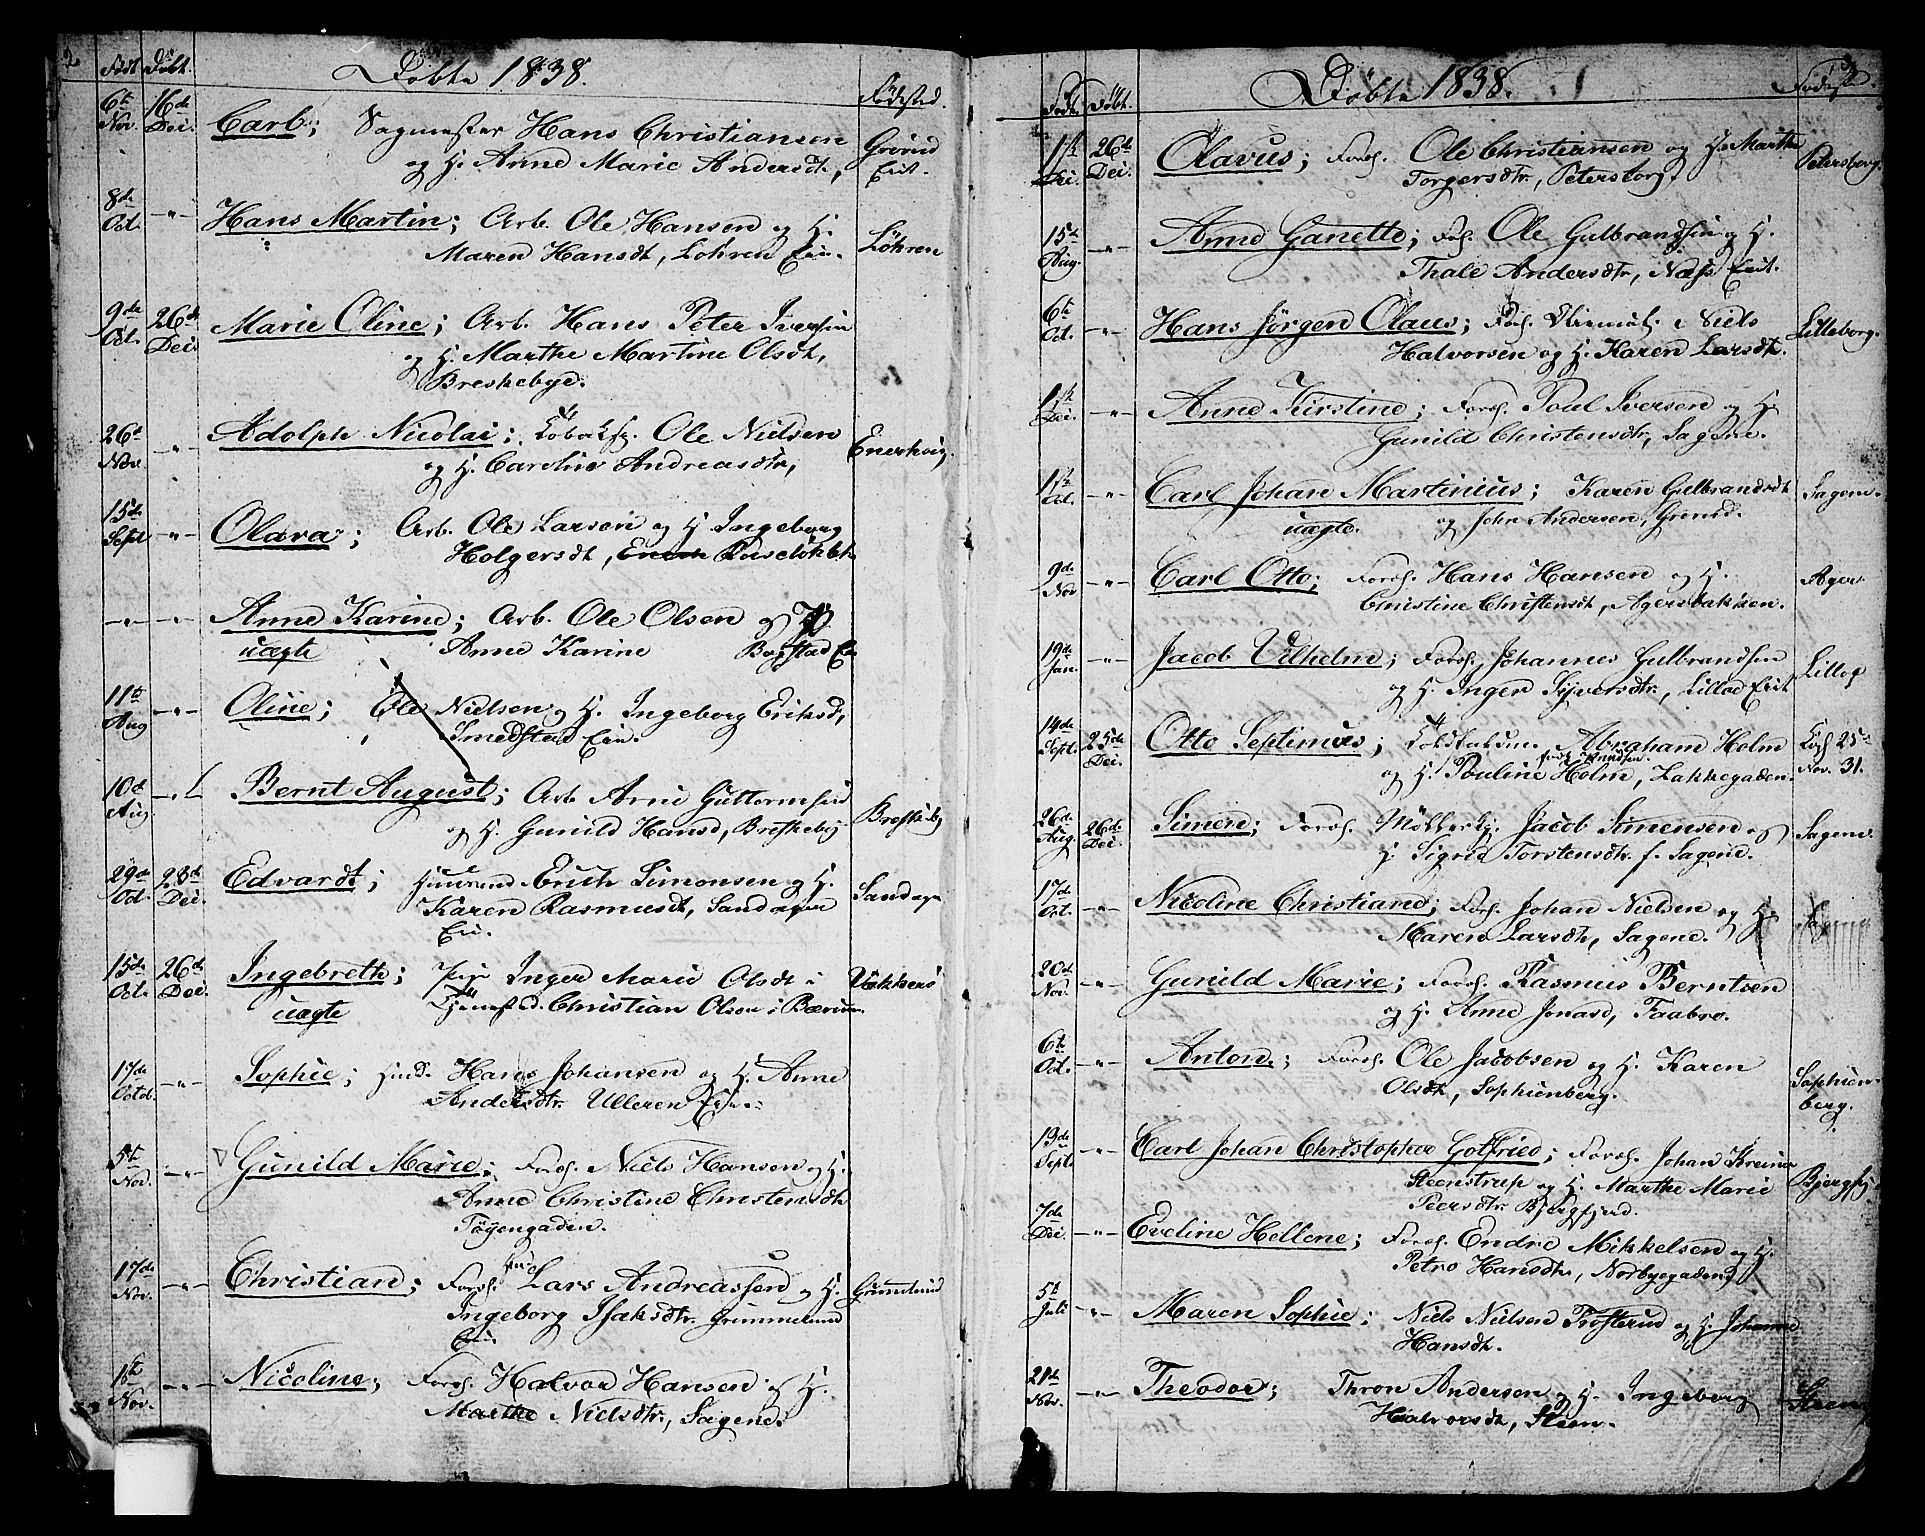 2
Født Døbt.
Döbte 1838.
Fødested.
6te Nov. 16de Dec. Carl; Sagmester Hans Christiansen Grorud
og H. Anne Marie Andersdt, Eiet.
8de Oct. -"- Hans Martin; Arb. Ole Hansen og H. Löhren
Maren Hansdt, Löhren Eie.
9de Oct. 26de Dec. Marie Oline; Arb. Hans Peter Iversen
og H. Marthe Martine Olsdt,
Breskebye.
26de Nov. -"- Adolph Nicolai; Ole Nielsen Enerhaug.
og H. Caroline Andreasdtr,
15de Sept -"- Olava; Arb. Ole Larsen og H. Ingeborg
Holgersdt,
-"- -"- Anne Karine; Arb. Ole Olsen og H.
uægte Anne Karine Bogstad Eie
11te Aug -"- Oline; Ole Nielsen og H. Ingeborg Eriksd,
Smedstad Eie.
10de Aug. -"- Bernt August; Arb. Arne Guttormsen Breskeby
og H. Gunild Hansd, Breskeby
29de Oct. 23de Dec. Edvardt; Huusmand Erich Simonsen og H. Sandager
Karen Rasmusdt, Sandageren
Eie.
15de Oct. 26de Dec. Ingebreth; Pige Inger Marie Olsdt i Vækkerö
uægte Christian Olsen i Bærum.
17de Octob. -"- Sophie; Huusd. Hans Johansen og H. Anne
Andersdtr. Ulleren Eie.
5te Nov. -"- Gunild Marie; Forch. Niels Hansen og H.
Anne Christine Christensdt
Töyengaden.
17de Nov. -"- Christian; Forch. Lars Andreassen og H. Grimelund
Ingeborg Isaksdtr. Grimmelund
Eie.
1ste Nov. -"- Nicoline; Forch. Halvor Hansen og H.
Marthe Nielsdtr, Sagene.
3
Født. Døbt.
Döbte 1838.
Fødest.
1ste Dec. 26de Dec. Olavus; Forch. Ole Christiansen og H. Marthe Petersborg.
Torgersdtr, Petersborg.
15de Aug. -"- Anne Ganette; Foch. Ole Gulbrandsen og H.
Thale Andersdtr, Næss Eiet.
6te Oct. -"- Hans Jørgen Olaus; Forch. Niels Lilleborg.
Halvorsen og H. Karen Larsdt.
1ste Dec. -"- Anne Kirstine; Forch. Poul Iversen og H.
Gunild Christensdtr, Sagene.
1ste Oct. -"- Carl Johan Martinius; Karen Gulbrandsdt Sagene.
uægte. og John Andersen,
9de Nov -"- Carl Otto; Forch. Hans Hansen og H. Ager
Christine Christensdt, Agersbakken.
19de Jan. -"- Jacob Vilhelm; Forch. Johannes Gulbrandsen Lilloe
og H. Inger Syversdtr., Lilloe Eiet
14de Sept. 25de Dec. Otto Septimus; Abraham Holm 25de
og H. Pauline Holm, Lakkegaden. Nov. 31.
26de Aug. 26de Dec. Simen; Forch. Möllersv. Jacob Simensen og Sagene.
H. Sigrie Torstensdtr. f. Sagene.
17de Oct. -"- Nicoline Christiane; Forch. Johan Nielsen og H.
Maren Larsdt, Sagene.
20de Nov. -"- Gunild Marie; Forch. Rasmus Berntsen
og H. Anne Jonasd, Taabro.
6te Oct. -"- Anton; Forch. Ole Jacobsen og H. Karen Sophien-
Olsdt, Sophienberg. berg.
13de Sept. -"- Carl Johan Christopher Gotfried; Forch. Johan
Steenstrup og H. Marthe Marie
Peersdtr.
7de Dec. -"- Eveline Hellene; Forch. Endre Mikkelsen og H.
Petro Hansdtr, Norbyegaden.
5te Juli -"- Maren Sophie; Niels Nielsen Frosterud og H. Johanne
Hansdt.
21de Nov. -"- Theodor; Thron Andersen og H. Ingeborg Steen
Halvorsdt, Steen.